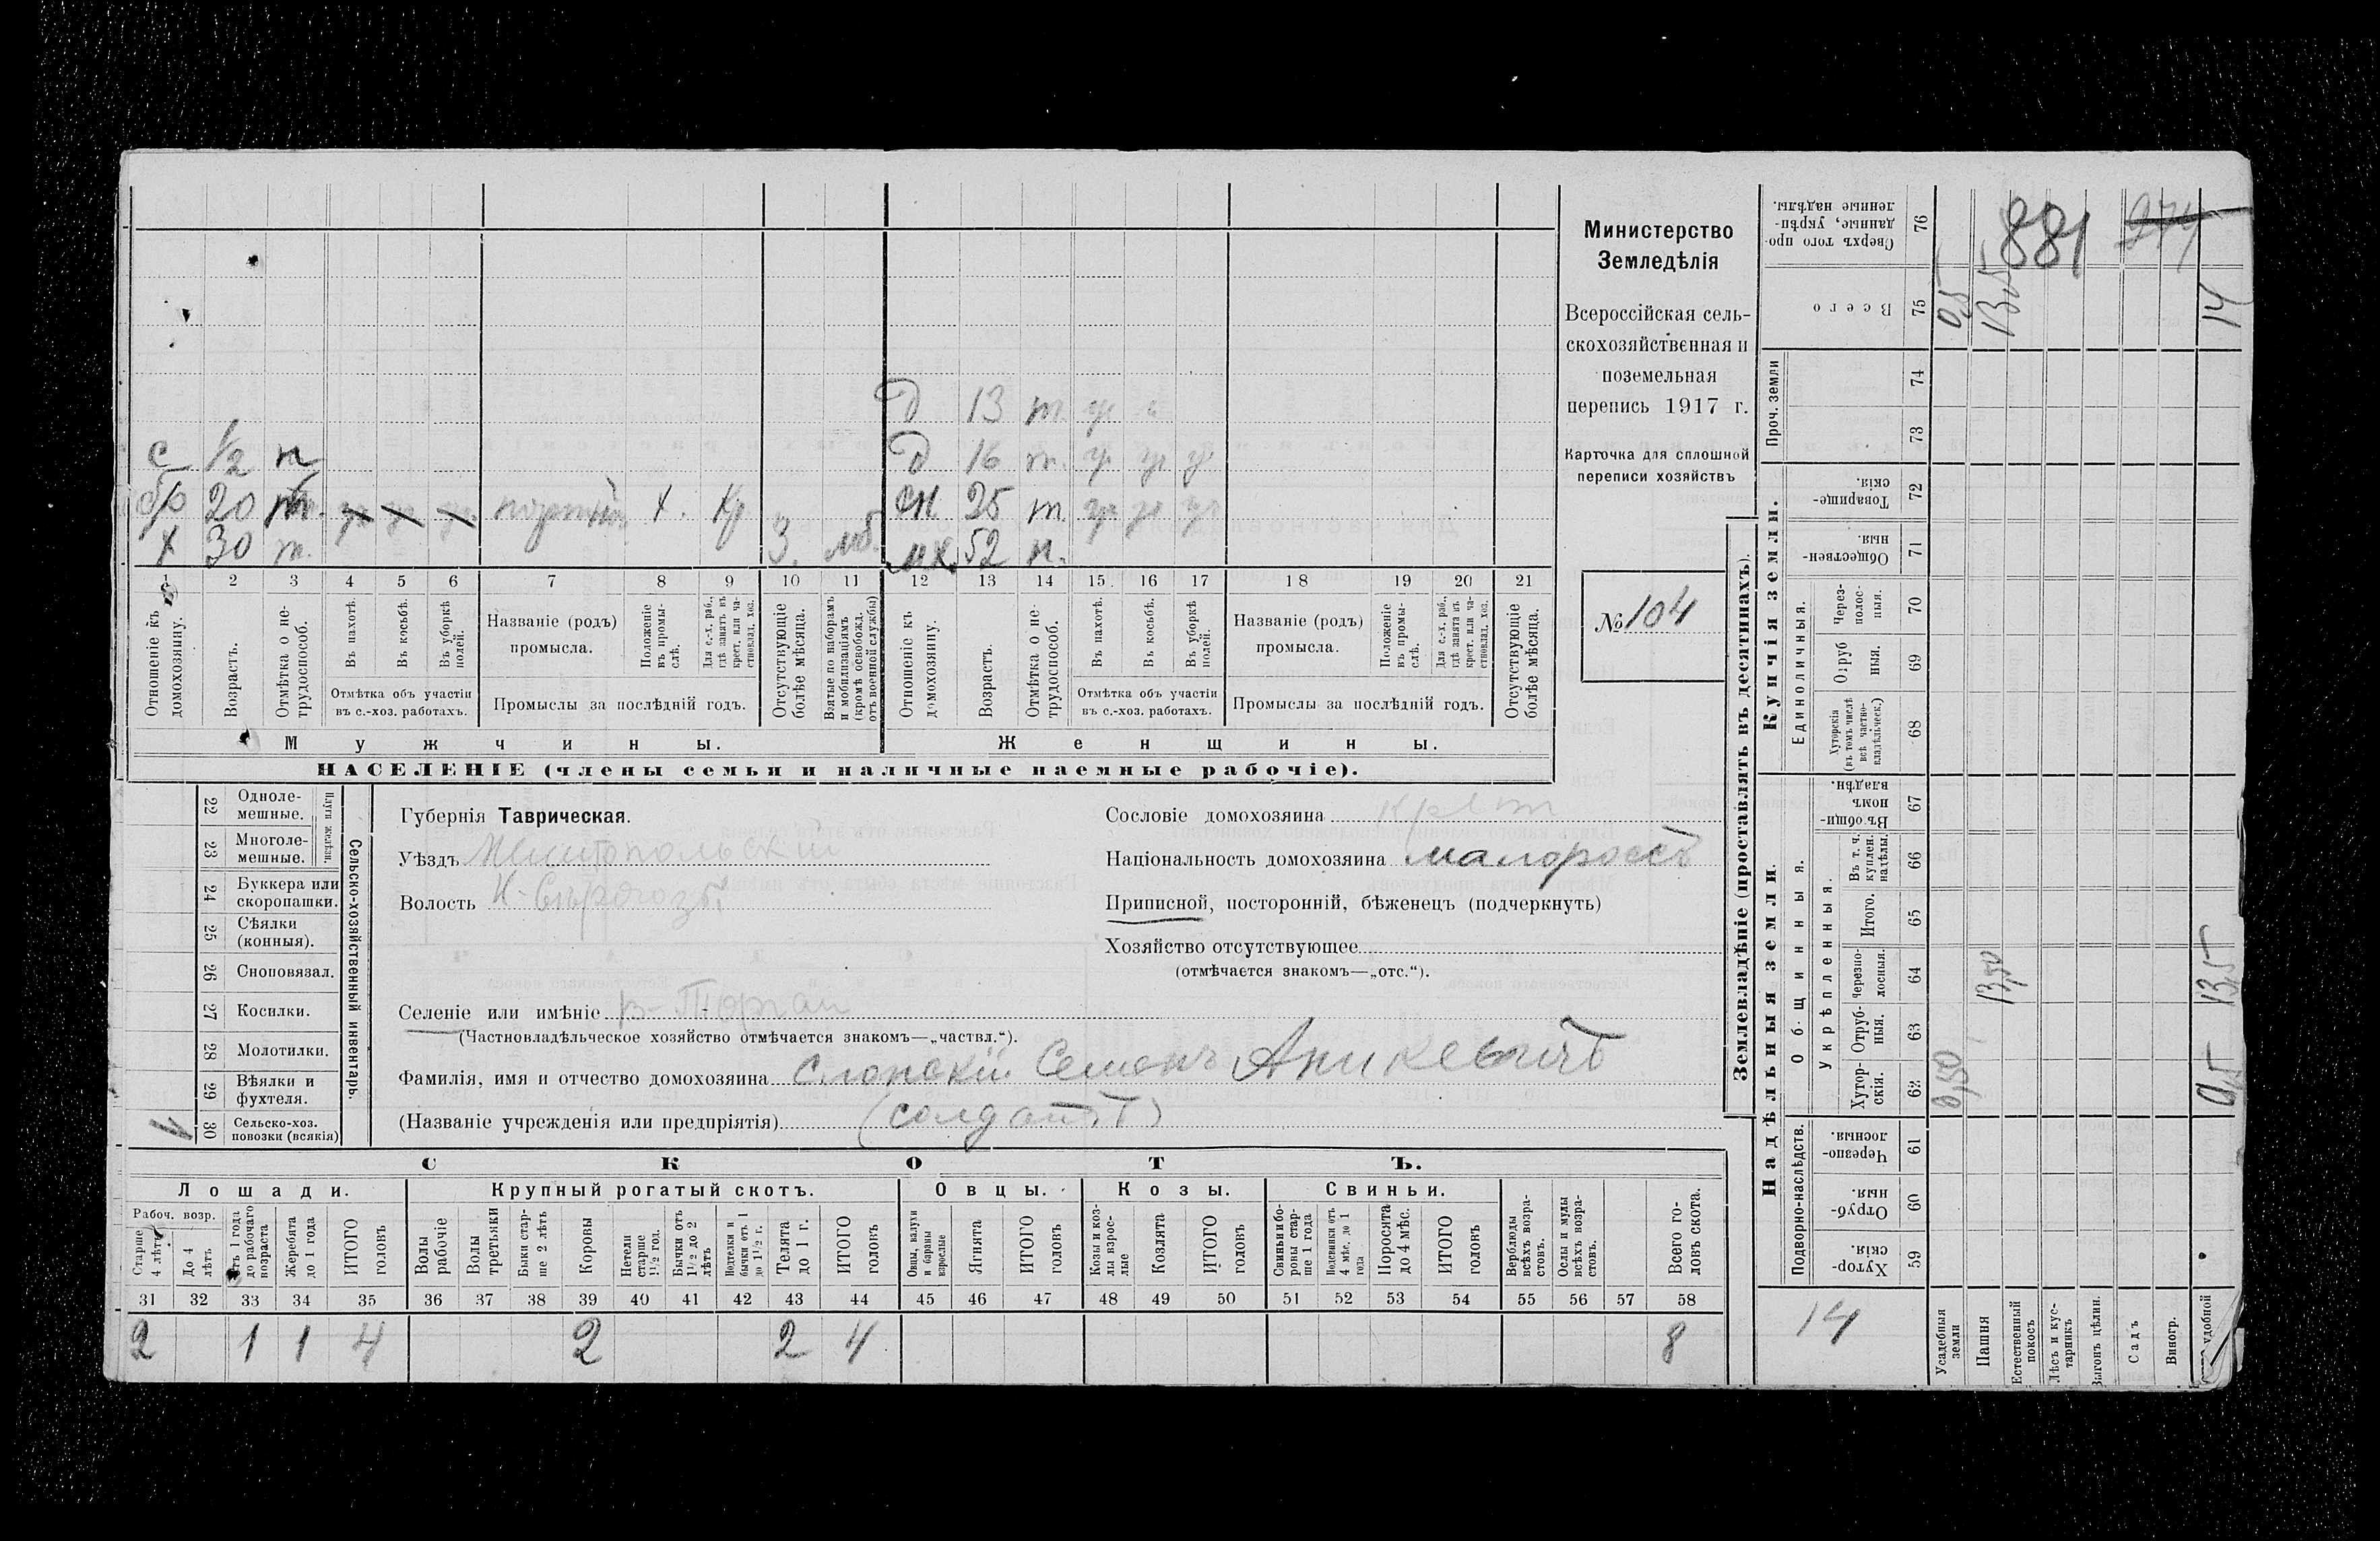 Министерство
Земледѣлія
Всероссійская сель-
скохозяйственная и
поземельная
перепись 1917 г.
Карточка для сплошной
переписи хозяйствъ
№ 104
881
274
Д 13 т.
с 1/2 н Д 16 т.
бр 20 т. х. кр сн. 25 т.
х 30 т. З. мб. мх. 52 н.
1 2 3 4 5 6 7 8 9 10 11 12 13 14 15 16 17 18 19 20 21
Отношеніе къ домохозяину.
Возрастъ.
Отмѣтка о не-трудоспособ.
Въ пахотѣ.
Въ косьбѣ.
Въ уборкѣ полей.
Отмѣтка объ участіи
въ с.-хоз. работахъ.
Названіе (родъ)
промысла.
Положеніе въ промы-слѣ.
Для с.-х. раб., гдѣ занятъ въ крест. или ча-стновлад. хоз.
Промыслы за послѣдній годъ.
Отсутствующіе болѣе мѣсяца.
Взятые по наборамъ и мобилизаціямъ (кромѣ освобожд. отъ военной службы)
Отношеніе къ домохозяину.
Возрастъ.
Отмѣтка о не-трудоспособ.
Въ пахотѣ.
Въ косьбѣ.
Въ уборкѣ полей.
Отмѣтка объ участіи
въ с.-хоз. работахъ.
Названіе (родъ)
промысла.
Положеніе въ промы-слѣ.
Для с.-х. раб., гдѣ занята въ крест. или ча-стновлад. хоз.
Промыслы за послѣдній годъ.
Отсутствующіе болѣе мѣсяца.
Мужчины. Женщины.
НАСЕЛЕНІЕ (члены семьи и наличные наемные рабочіе).
Сельско-хозяйственный инвентарь.
Плуги желѣзн.
22 Одноле-мешные.
23 Многоле-мешные.
24 Буккера или скоропашки.
25 Сѣялки (конныя).
26 Сноповязал.
27 Косилки.
28 Молотилки.
29 Вѣялки и фухтеля.
30 Сельско-хоз. повозки (всякія)
1
Губернія Таврическая.
Уѣздъ Мелитопольскій
Волость Н-Сѣрогозы
Селеніе или имѣніе
(Частновладѣльческое хозяйство отмѣчается знакомъ—„частвл.“).
Фамилія, имя и отчество домохозяина Слонскій Семенъ Аникевичъ
(Названіе учрежденія или предпріятія) (солдатъ)
Сословіе домохозяина крест
Національность домохозяина малороссъ
Приписной, посторонній, бѣженецъ (подчеркнуть)
Хозяйство отсутствующее
(отмѣчается знакомъ—„отс.“).
СКОТЪ.
Лошади. Крупный рогатый скотъ. Овцы. Козы. Свиньи.
Рабоч. возр.
Старше 4 лѣтъ
До 4 лѣтъ
Отъ 1 года до рабочаго возраста
Жеребята до 1 года
ИТОГО головъ
Волы рабочіе
Волы третьяки
Быки стар-ше 2 лѣтъ
Коровы
Нетели старше 1½ год.
Бычки отъ 1½ до 2 лѣтъ
Нетелки и бычки отъ 1 до 1½ г.
Телята до 1 г.
ИТОГО головъ
Овцы, валухи и бараны взрослые
Ягнята
ИТОГО головъ
Козы и коз-лы взрос-лые
Козлята
ИТОГО головъ
Свиньи и бо-ровы стар-ше 1 года
Подсвинки отъ 4 мѣс. до 1 года
Поросята до 4 мѣс.
ИТОГО головъ
Верблюды всѣхъ возра-стовъ.
Ослы и мулы всѣхъ возра-стовъ.
Всего го-ловъ скота.
31 32 33 34 35 36 37 38 39 40 41 42 43 44 45 46 47 48 49 50 51 52 53 54 55 56 57 58
2 1 1 4 2 2 4 8
Землевладѣніе (проставлять въ десятинахъ).
Надѣльныя земли. Купчія земли.
Подворно-наслѣдств.
Общинныя.
Укрѣпленныя.
Единоличныя.
Проч. земли
59 Хутор-скія.
60 Отруб-ныя.
61 Черезпо-лосныя.
62 Хутор-скія.
63 Отруб-ныя.
64 Черезпо-лосныя.
65 Итого.
66 Въ т. ч. куплен. надѣлы.
67 Въ общи-номъ владѣн.
68 Хуторскія (въ томъ числѣ всѣ частно-владѣльческ.)
69 Отруб ныя.
70 Через-полос-ныя.
71 Обществен-ныя.
72 Товарище-скія.
73
74
75 Всего
76 Сверхъ того про-данные, укрѣп-ленные надѣлы.
14
Усадебныя земли 0,50 0,5
Пашня 13,50 13,5
Естественный покосъ
Лѣсъ и кус-тарникъ
Выгонъ цѣлин.
Садъ
Виногр.
удобной 0,5 13,5 14